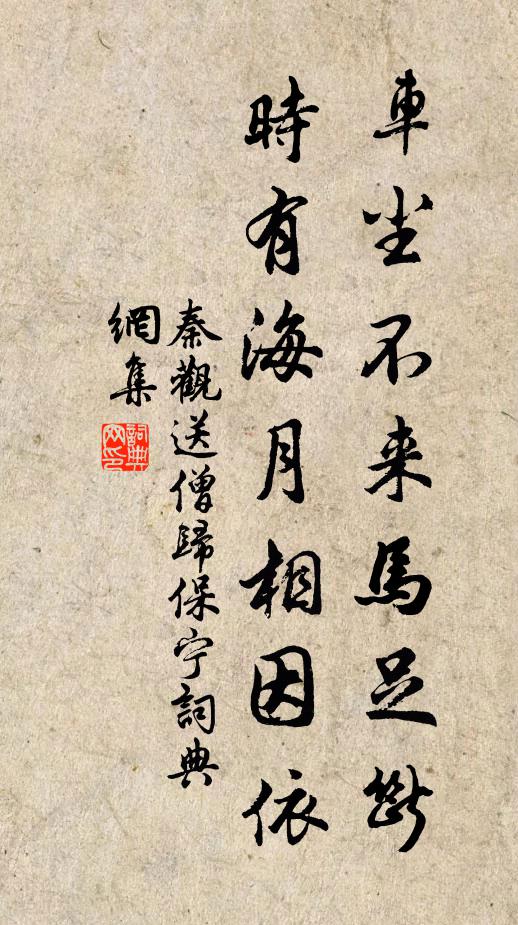 車尘不来馬足断
時有海月相因依
秦觀送僧歸保宁詞典
網集
詞典
网印